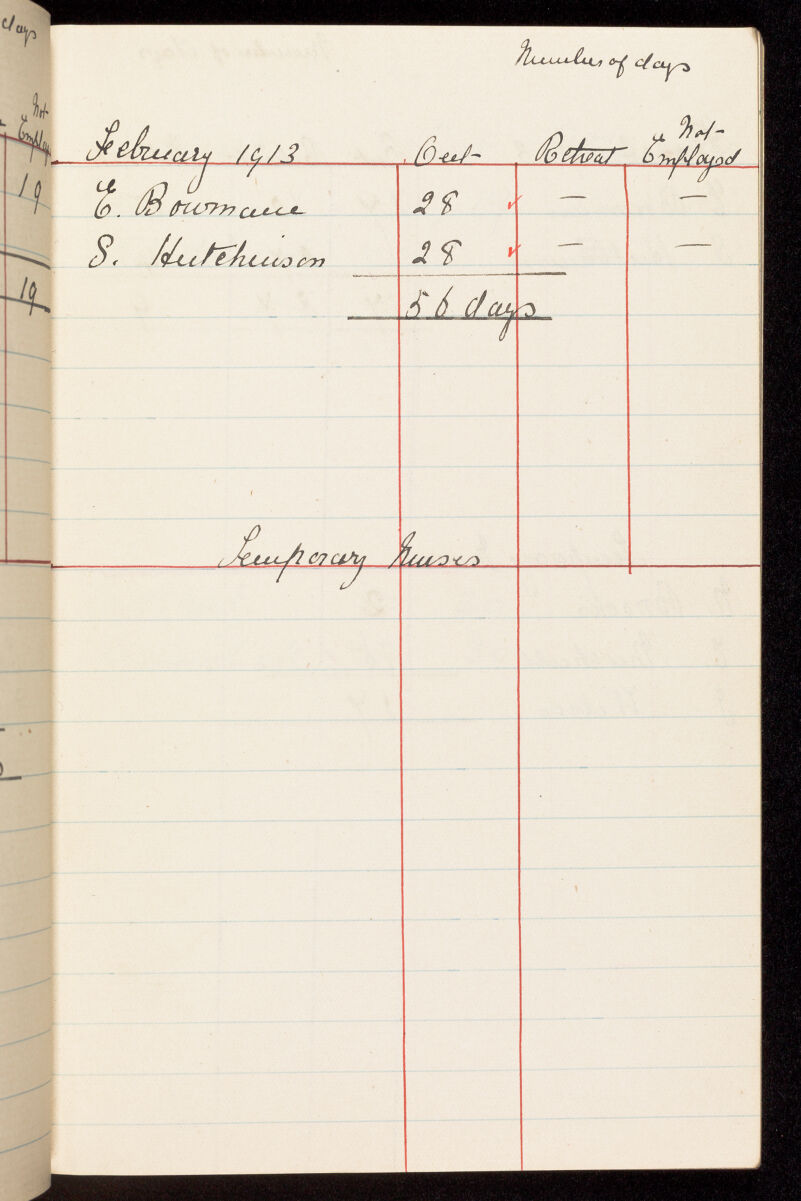 days
Number of days
Not
Employ
February 1913 Out Retreat Not Employed
19
E. Bowmane 28 ✓ — —
S. Hutchinson 28 ✓ — —
19
56 days
Temporary Nurses